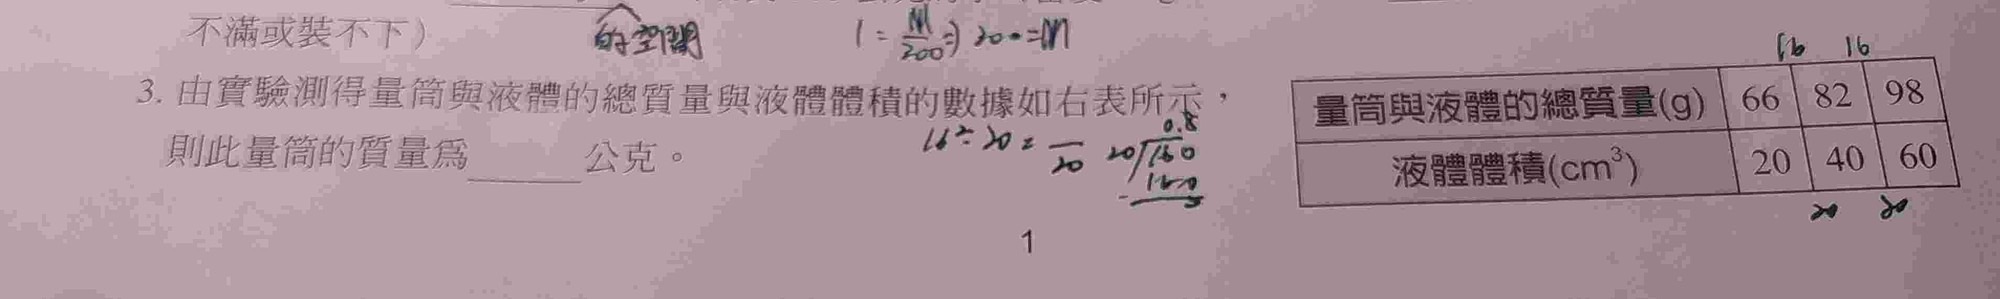 不滿或裝不下）
的空間
1 = M/200 ⇒ 200 = M
3. 由實驗測得量筒與液體的總質量與液體體積的數據如右表所示，
則此量筒的質量為______公克。
16 ÷ 20 =
20
0.8
20
160
16 16
量筒與液體的總質量(g) 66 82 98
液體體積(cm³) 20 40 60
20 20
1